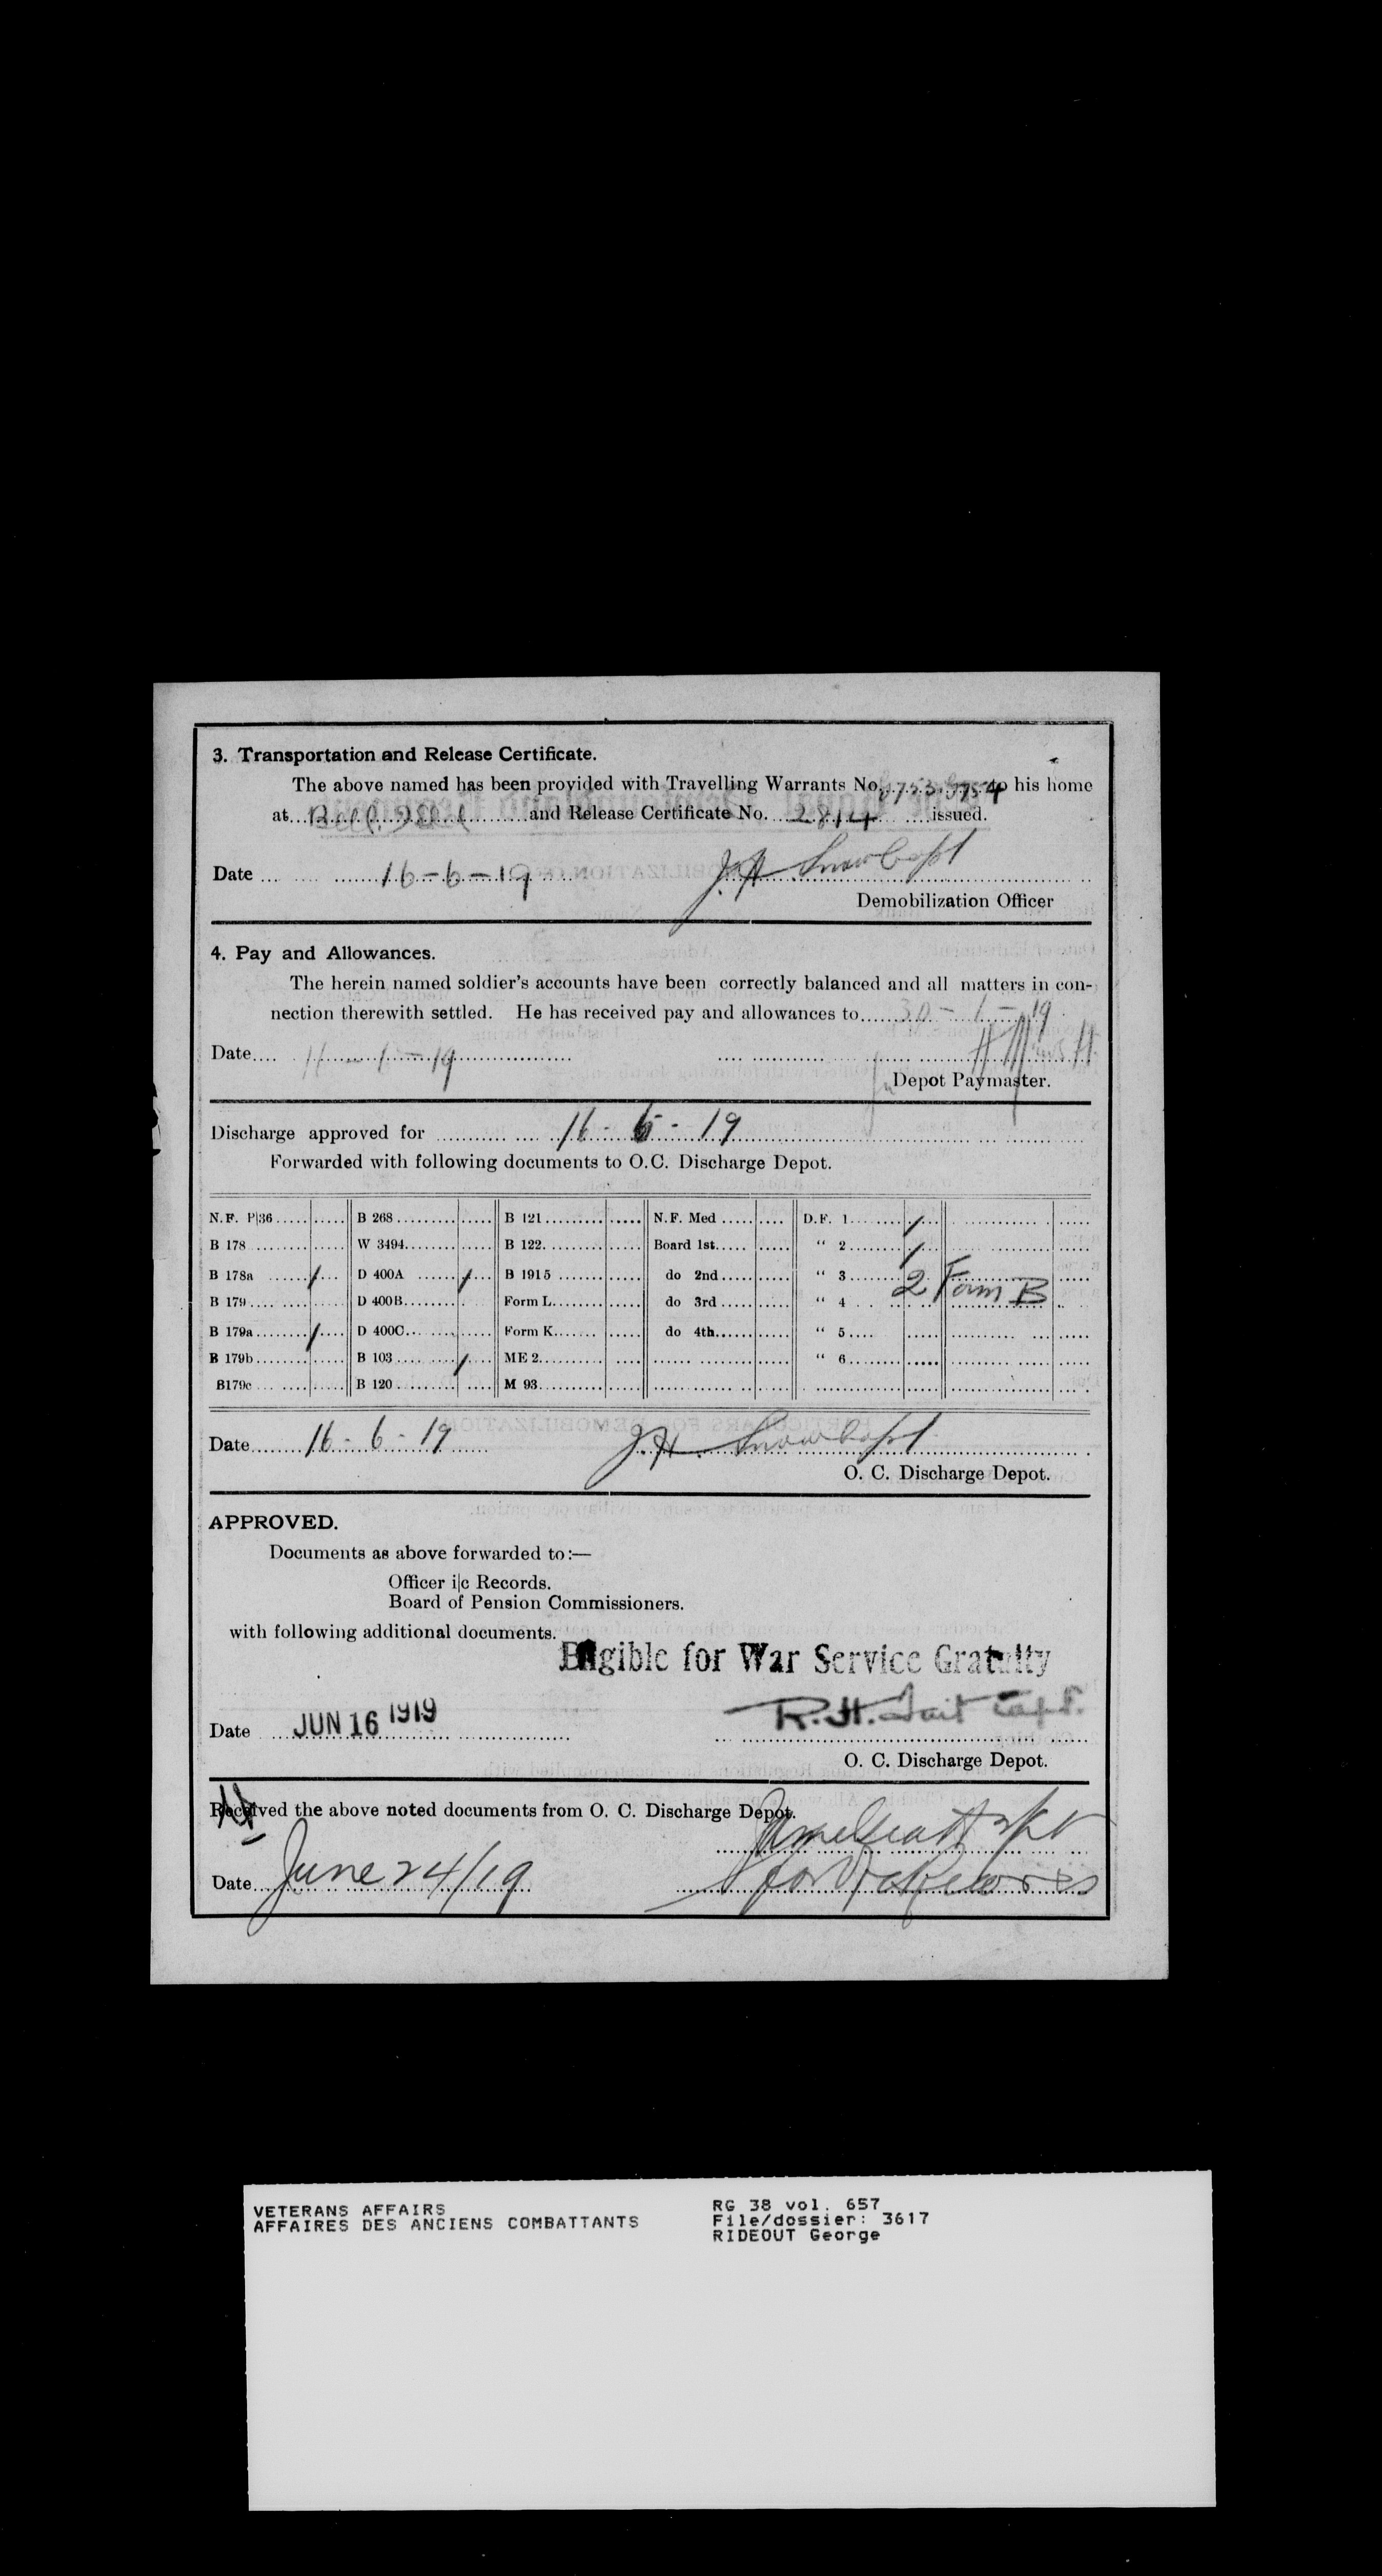 3. Transportation and Release Certificate.
The above named has been provided with Travelling Warrants No. to his home
at and Release Certificate No. 2814 issued.
Date 16-6-19 J.H. Snow Capt
Demobilization Officer
4. Pay and Allowances.
The herein named soldier's accounts have been correctly balanced and all matters in con-
nection therewith settled. He has received pay and allowances to 19
Date 19
Depot Paymaster.
Discharge approved for 16-6-19
Forwarded with following documents to O.C. Discharge Depot.
N.F. P|36 B 268 B 121 N.F. Med D.F. 1 /
B 178 W 3494 B 122 Board 1st " 2 /
B 178a / D 400A / B 1915 do 2nd " 3 2 Form B
B 179 D 400B Form L do 3rd " 4
B 179a / D 400C Form K do 4th " 5
B 179b B 103 / ME 2 " 6
B179c B 120 M 93
Date 16-6-19 J.H. Snow Capt
O. C. Discharge Depot.
APPROVED.
Documents as above forwarded to:—
Officer i|c Records.
Board of Pension Commissioners.
with following additional documents.
Eligible for War Service Gratuity
Date JUN 16 1919 R.H. Tait Capt.
O. C. Discharge Depot.
Received the above noted documents from O. C. Discharge Depot.
Date June 24/19 for
VETERANS AFFAIRS
AFFAIRES DES ANCIENS COMBATTANTS
RG 38 vol. 657
File/dossier: 3617
RIDEOUT George